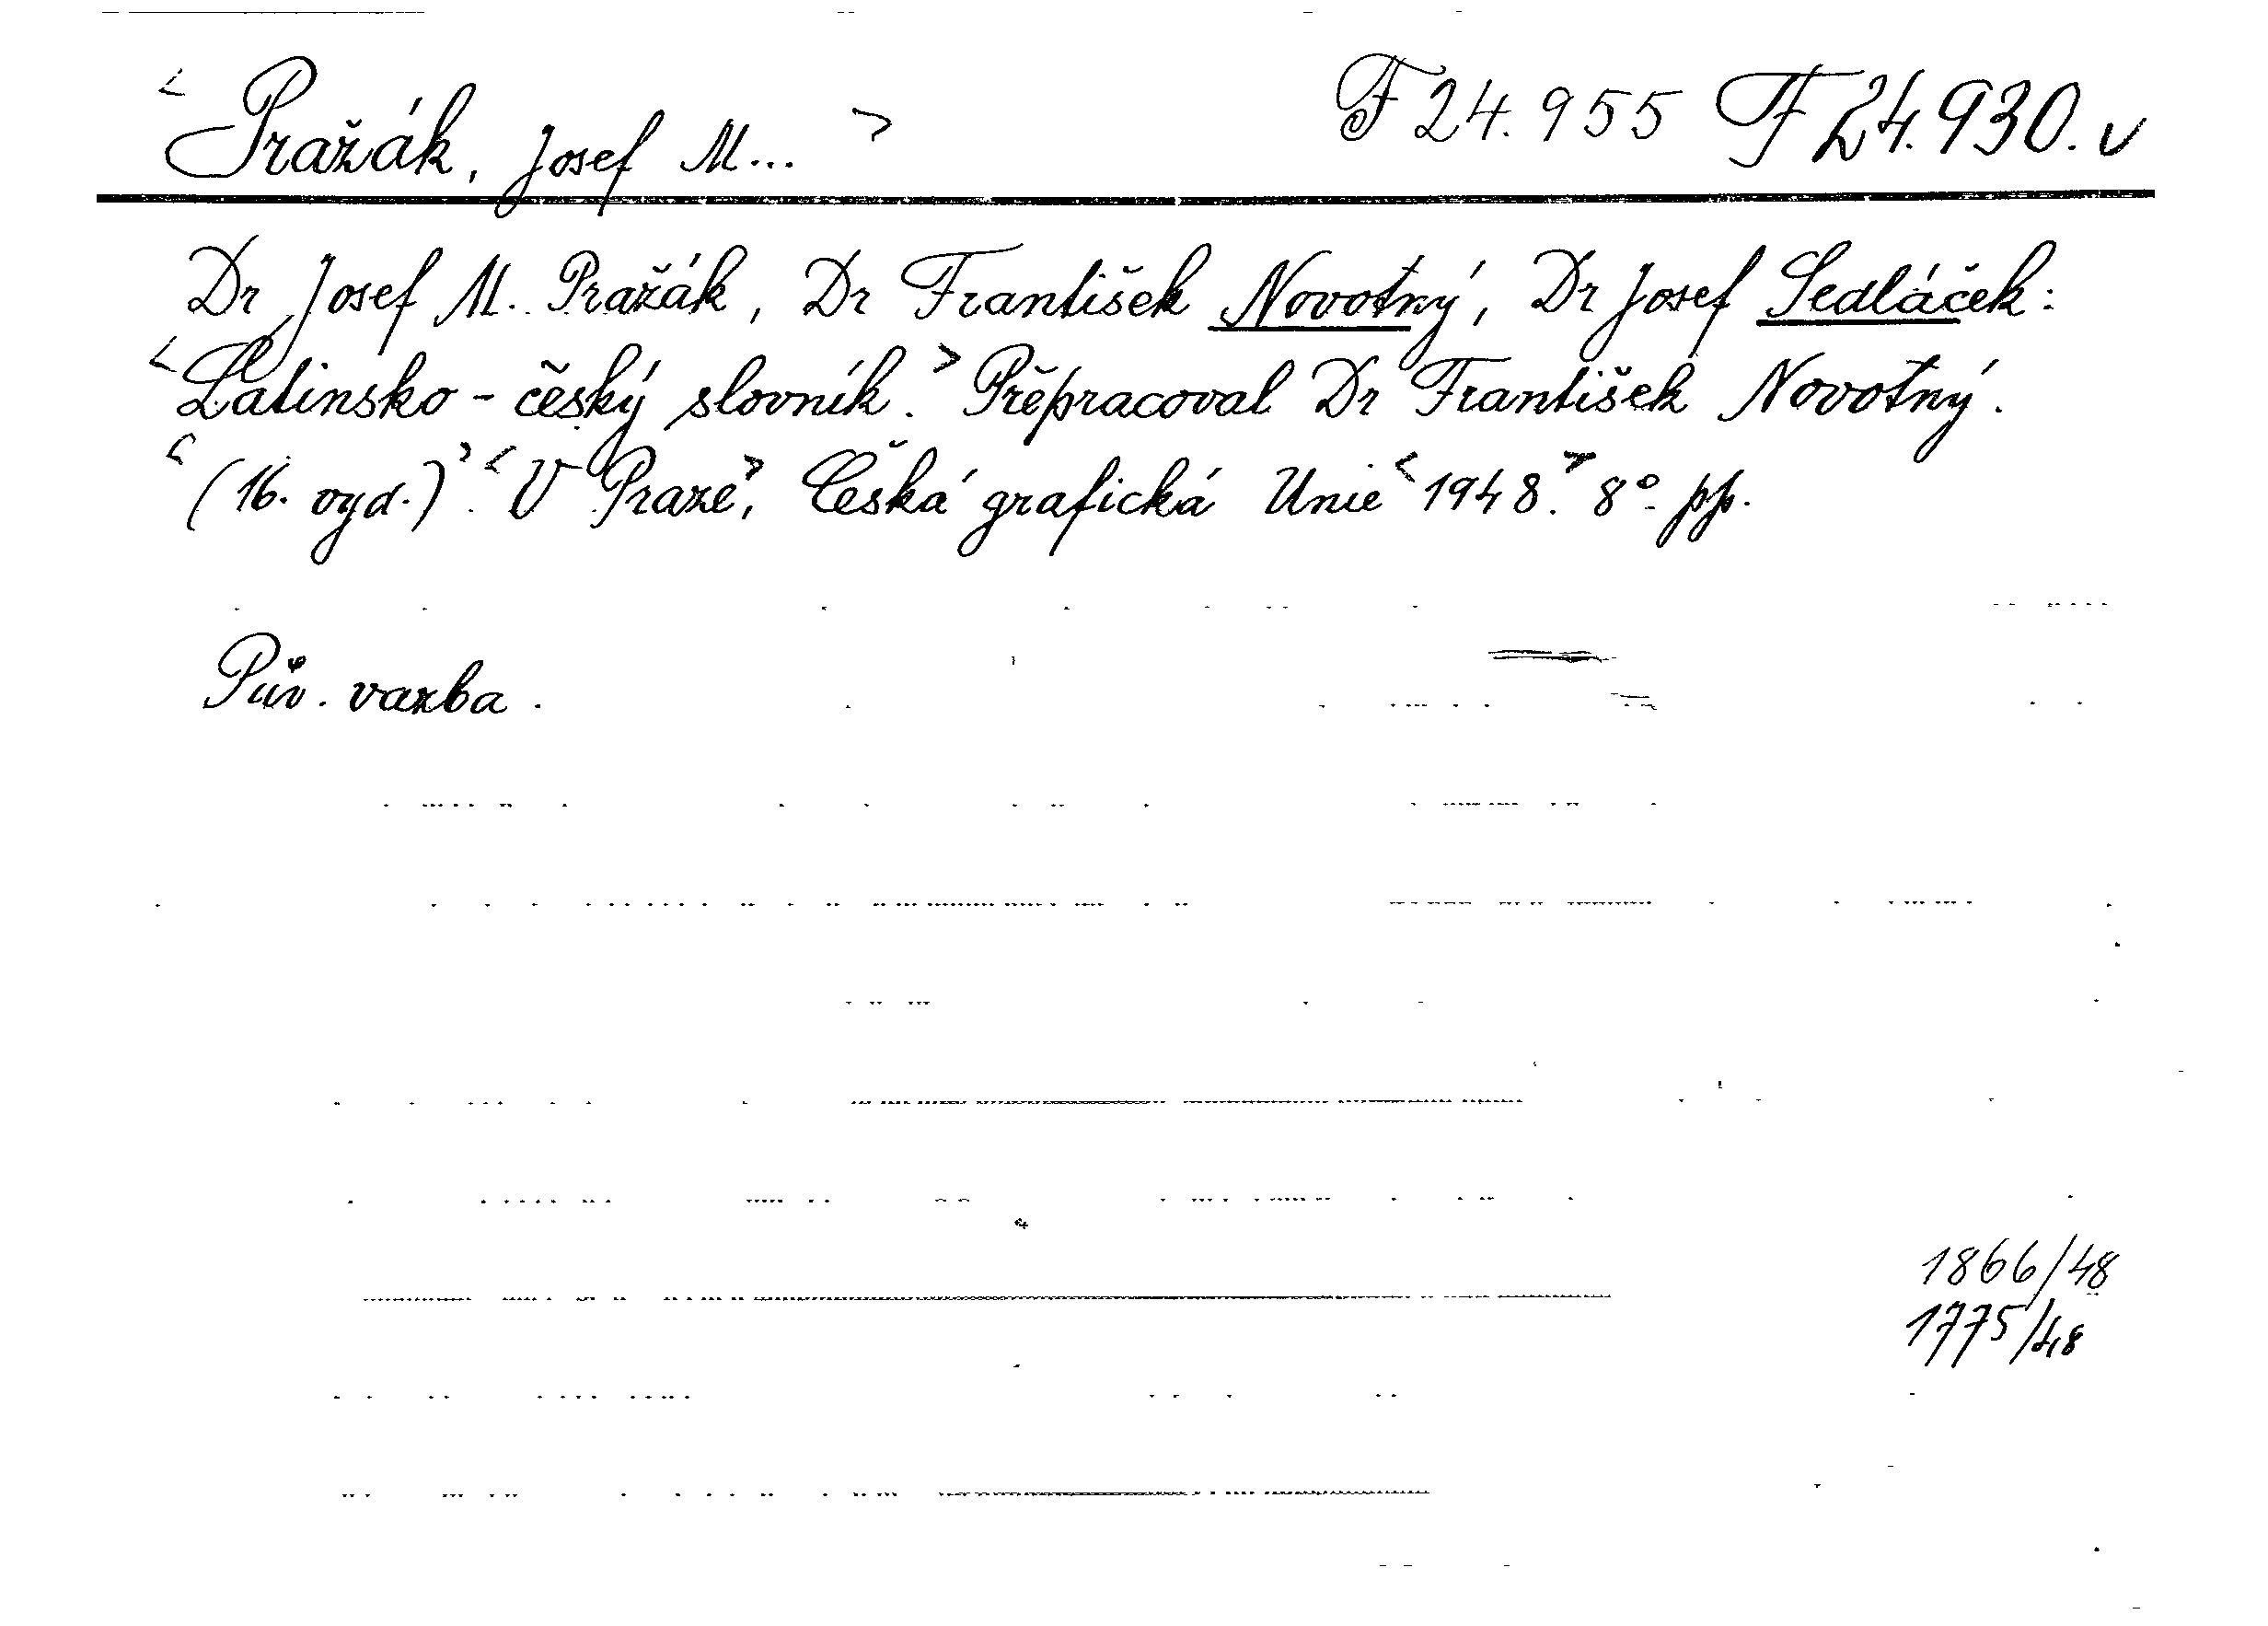 < Pražák, Josef M... > F 24.955 F 24.930. v
Dr Josef M. Pražák, Dr František Novotný, Dr Josef Sedláček:
<Latinsko-český slovník.> Přepracoval Dr František Novotný.
<(16. vyd.)> <V Praze>, Česká grafická Unie <1948.> 8° pp.
Pův. vazba.
1866/48
1775/48